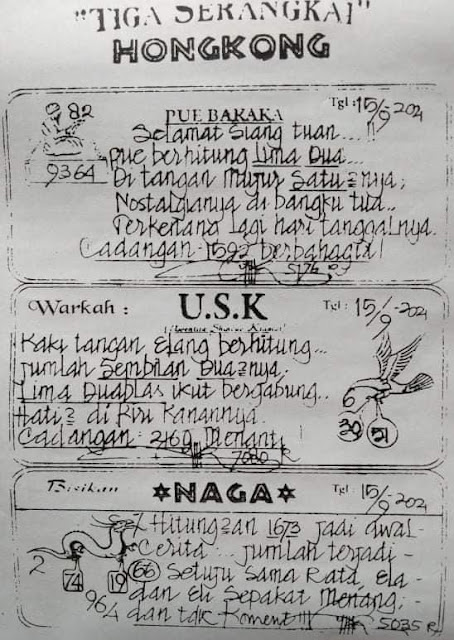 "TIGA SERANGKAI"
HONGKONG
82
9364
PUE BARAKA
Tgl : 15/9-2021
Selamat Siang tuan....!!
pue berhitung Lima Dua...
Di tangan Mujur Satu2nya;
Nostalgianya di bangku tua..
Terkenang lagi hari tanggalnya.
Cadangan 1592 berbahagia!
Warkah :
U.S.K
Tgl : 15/9-2021
Kaki tangan Elang berhitung...
jumlah Sembilan Dua2nya.
Lima Duablas ikut bergabung..
Hati2 di Kiri Kanannya.
Cadangan: 2160 Menanti
7080 R
6
30 21
Bisikan
NAGA
Tgl : 15/9-2021
7 Hitungan 1673 jadi awal-
Cerita... jumlah terjadi-
66 Setuju Sama Rata, Ela-
dan Eli Sepakat Menang;-
dan tdk Koment!!!
5035 R
2
74 19
964